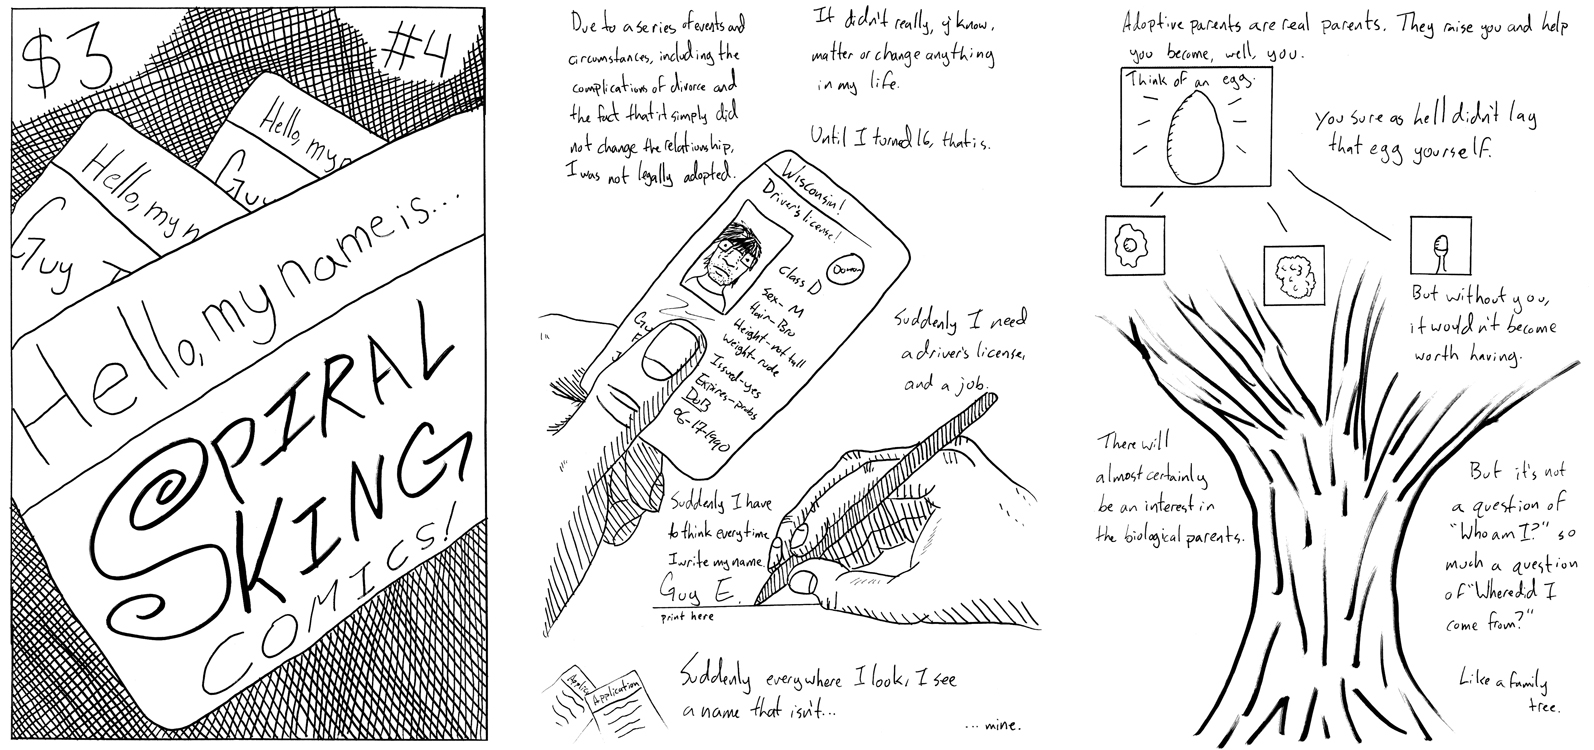 $3
#4
Hello, my n
Guy
Hello, my n
Guy
Hello, my name is...
SPIRAL
SKING
COMICS!
Due to a series of events and
circumstances, including the
complications of divorce and
the fact that it simply did
not change the relationship,
I was not legally adopted.
It didn't really, y'know,
matter or change anything
in my life.
Until I turned 16, that is.
Wisconsin!
Driver's license!
Class D
Sex- M
Hair- Bro
Height- not tall
Weight- rude
Issued- yes
Expires- probs
DoB
06-17-1990
Suddenly I need
a driver's license,
and a job.
Suddenly I have
to think every time
I write my name.
Guy E.
print here
Applic
Application
Suddenly everywhere I look, I see
a name that isn't...
...mine.
Adoptive parents are real parents. They raise you and help
you become, well, you.
Think of an egg.
You sure as hell didn't lay
that egg yourself.
But without you,
it wouldn't become
worth having.
There will
almost certainly
be an interest in
the biological parents.
But it's not
a question of
"Who am I?" so
much a question
of "Where did I
come from?"
Like a family
tree.